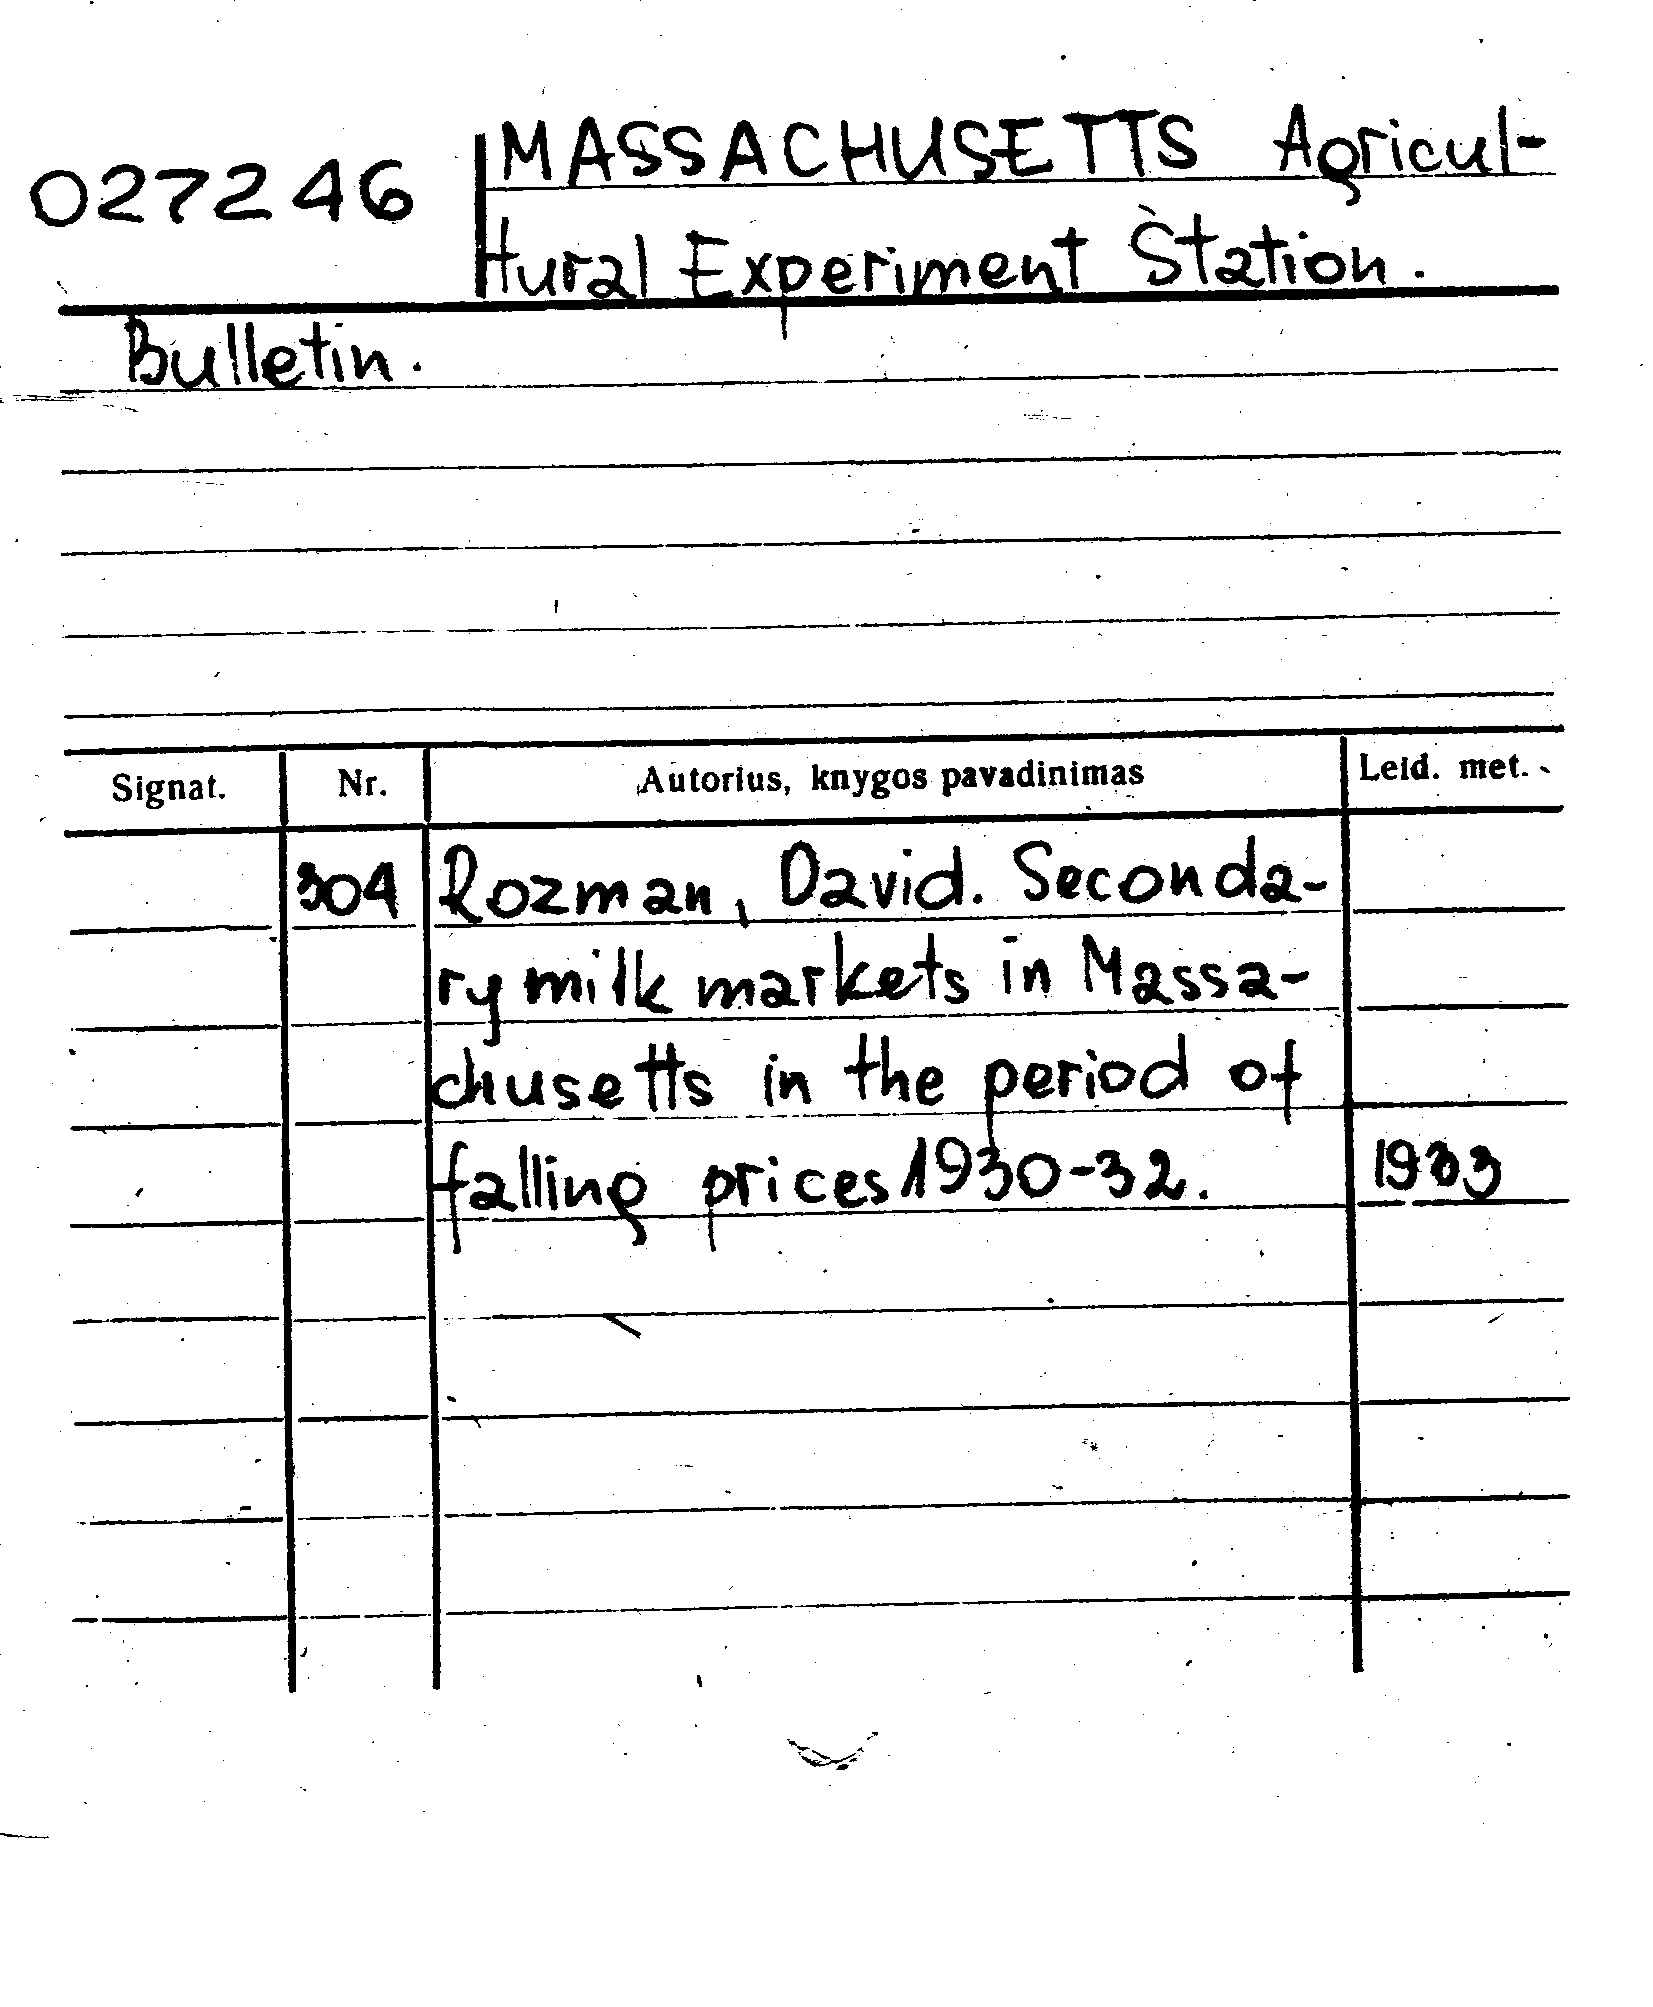 027246
MASSACHUSETTS Agricul-
tural Experiment Station.
Bulletin.
Signat. Nr. Autorius, knygos pavadinimas Leid. met.
304 Rozman, David. Seconda-
ry milk markets in Massa-
chusetts in the period of
falling prices 1930-32. 1933